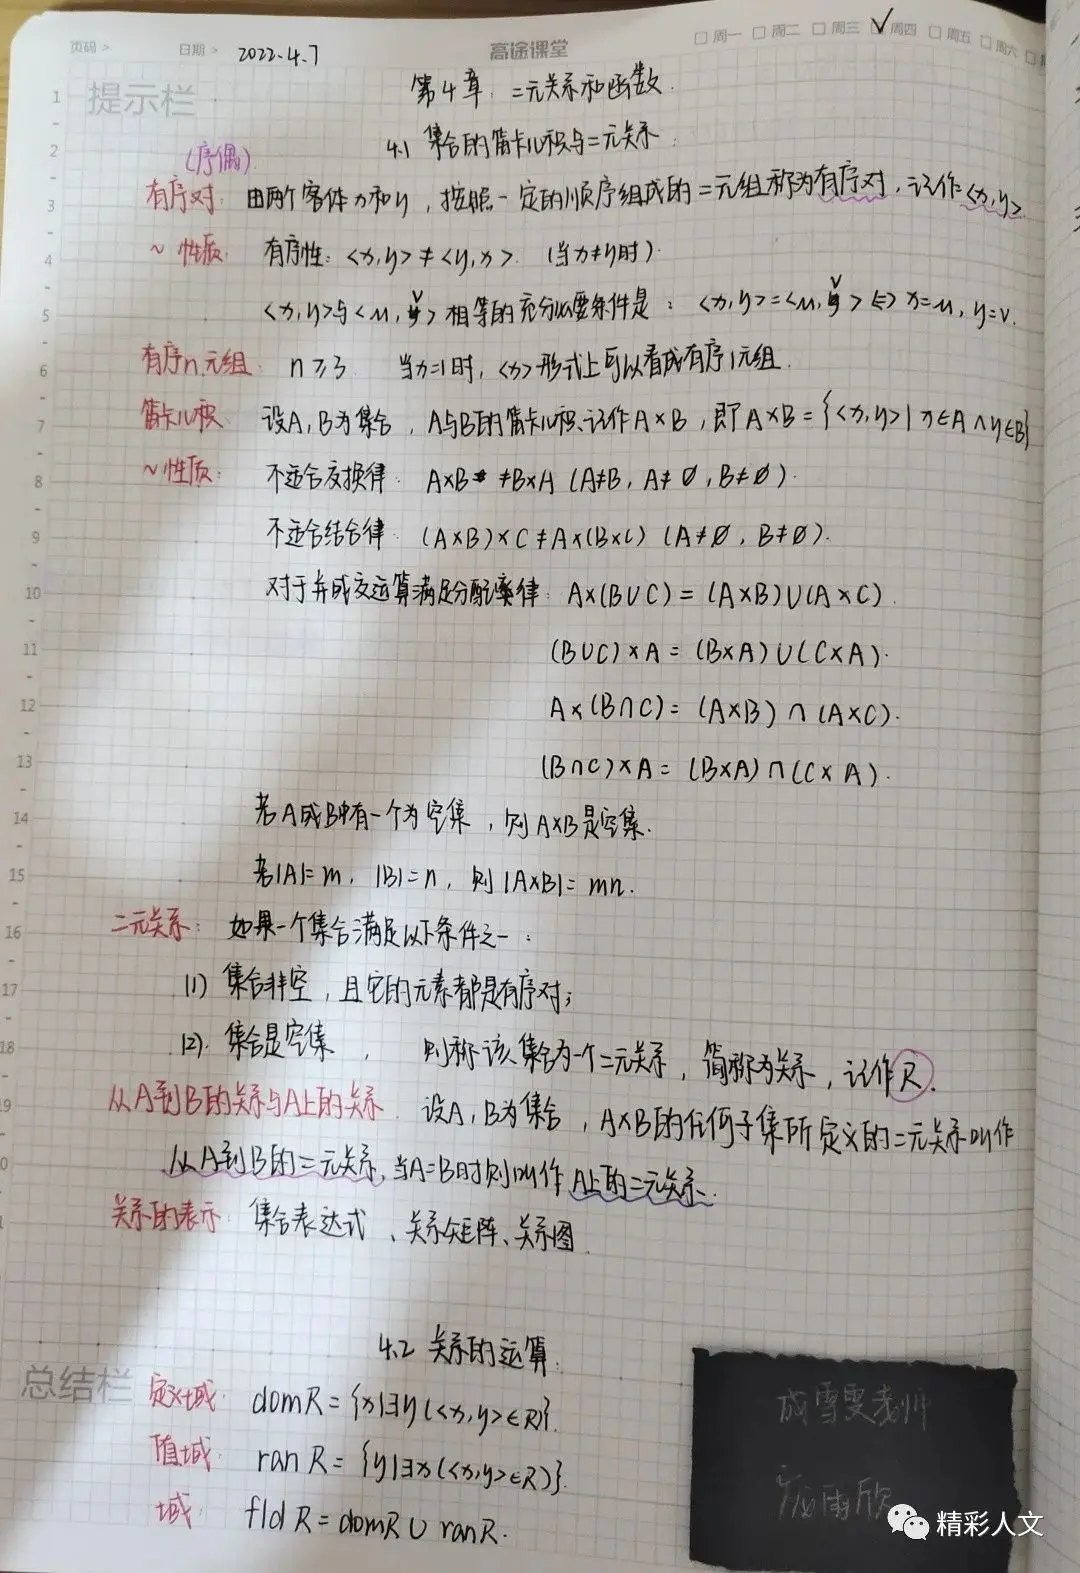 页码 > 日期 > 2022.4.7 高途课堂 □周一 □周二 □周三 ☑周四 □周五 □周六
提示栏
第4章：二元关系和函数.
4.1 集合的笛卡儿积与二元关系：
(序偶)
有序对： 由两个客体x和y，按照一定的顺序组成的二元组称为有序对，记作<x,y>
~性质： 有序性：<x,y>≠<y,x>. (当x≠y时).
<x,y>与<u,v>相等的充分必要条件是：<x,y>=<u,v>⇔x=u, y=v.
有序n元组： n≥3 当n=1时，<x>形式上可以看成有序1元组.
笛卡儿积： 设A,B为集合，A与B的笛卡儿积记作A×B，即A×B={<x,y>|x∈A∧y∈B}
~性质： 不适合交换律： A×B≠B×A (A≠B, A≠∅, B≠∅).
不适合结合律： (A×B)×C≠A×(B×C) (A≠∅, B≠∅).
对于并或交运算满足分配律： A×(B∪C)=(A×B)∪(A×C).
(B∪C)×A=(B×A)∪(C×A).
A×(B∩C)=(A×B)∩(A×C).
(B∩C)×A=(B×A)∩(C×A).
若A或B中有一个为空集，则A×B是空集.
若|A|=m, |B|=n, 则|A×B|=mn.
二元关系： 如果一个集合满足以下条件之一：
(1) 集合非空，且它的元素都是有序对；
(2). 集合是空集， 则称该集合为一个二元关系，简称为关系，记作R.
从A到B的关系与A上的关系. 设A,B为集合，A×B的任何子集所定义的二元关系叫作
从A到B的二元关系,当A=B时则叫作A上的二元关系.
关系的表示： 集合表达式、关系矩阵、关系图.
4.2 关系的运算：
总结栏
定义域： domR={x|∃y(<x,y>∈R)}.
值域： ranR={y|∃x(<x,y>∈R)}.
域： fldR=domR∪ranR.
成雪雯老师
雨欣
精彩人文